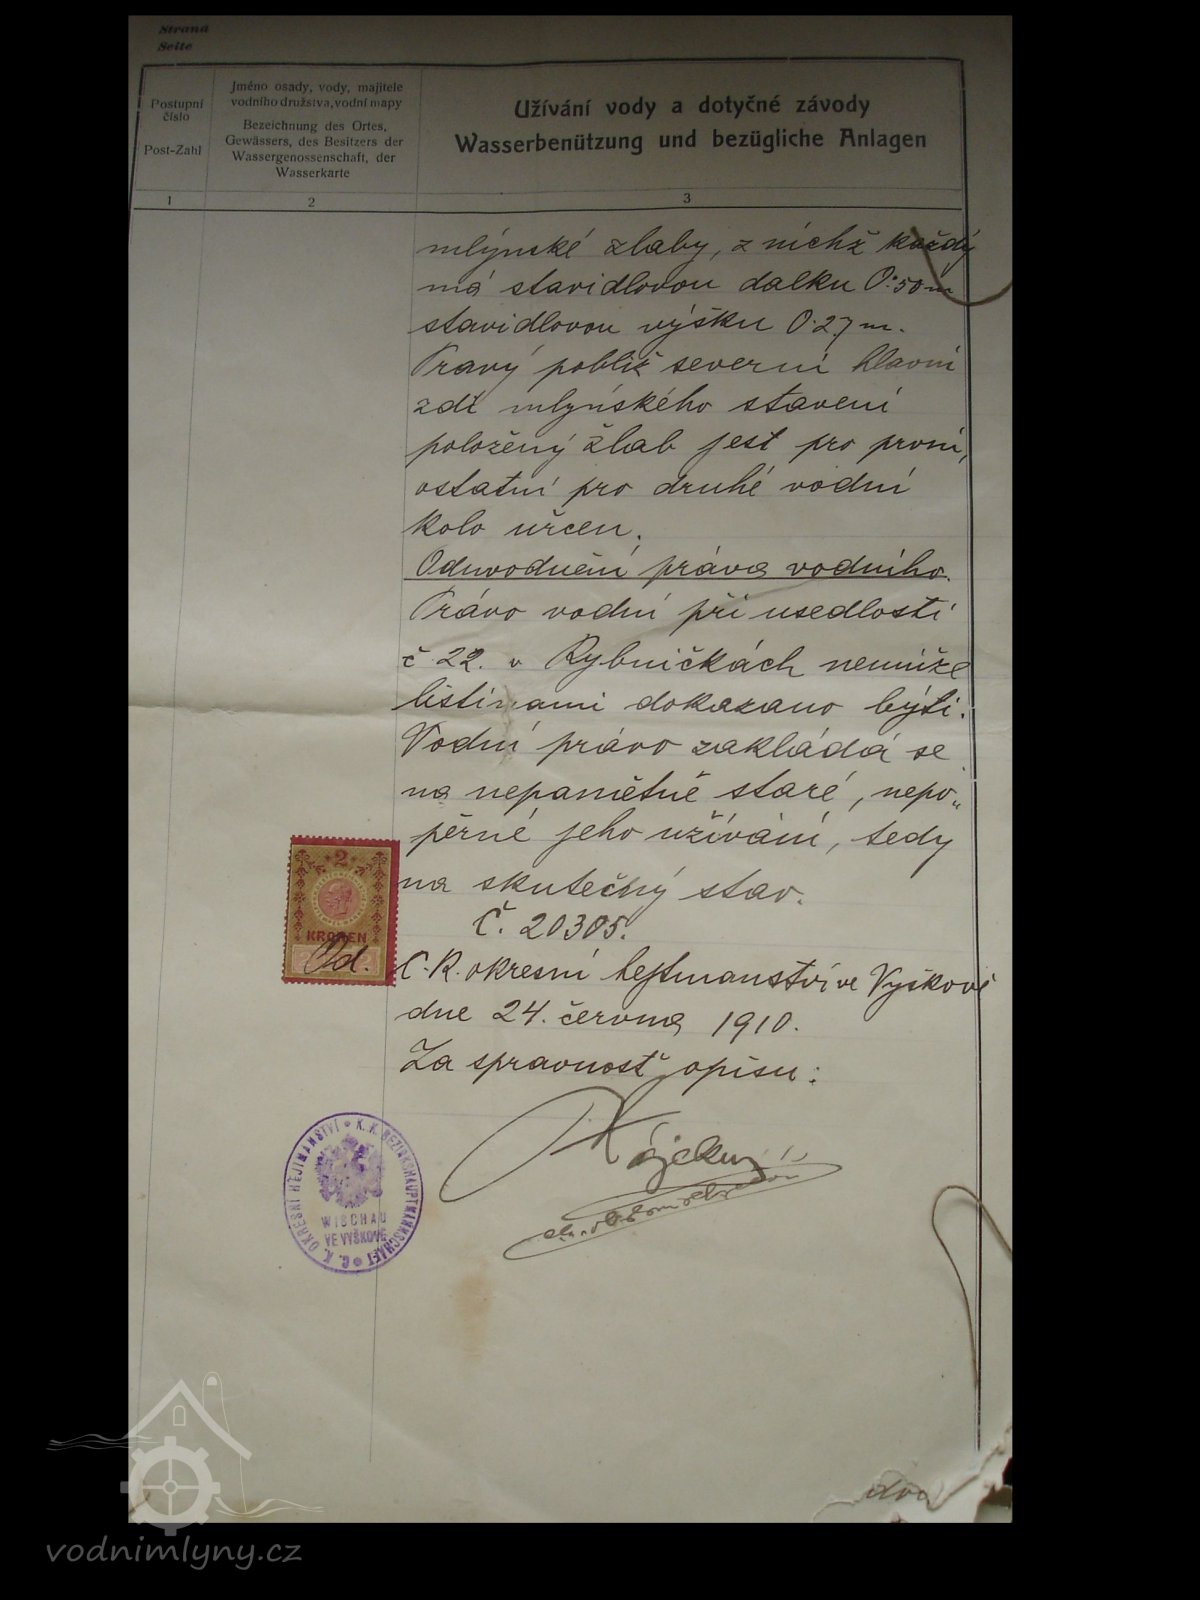 Strana
Seite
Postupní
číslo
Post-Zahl
Jméno osady, vody, majitele
vodního družstva, vodní mapy
Bezeichnung des Ortes,
Gewässers, des Besitzers der
Wassergenossenschaft, der
Wasserkarte
Užívání vody a dotyčné závody
Wasserbenützung und bezügliche Anlagen
1
2
3
mlýnské žlaby, z nichž každý
má stavidlovou dalku 0.50 m
stavidlovou výšku 0.27 m.
Pravý poblíž severní hlavní
zdi mlýnského stavení
položený žlab jest pro první,
ostatní pro druhé vodní
kolo určen.
Oduvodnění práva vodního.
Právo vodní při usedlosti
č 22. v Rybničkách nemůže
listinami dokazano býti.
Vodní právo zakládá se
na nepamětně staré, nepo„
pěrné jeho užívání, tedy
na skutečný stav.
Č. 20305.
C. K. okresní hejtmanství ve Vyškově
dne 24. června 1910.
Za spravnosť opisu:
2
KRONEN
C. K. OKRESNÍ HEJTMANSTVÍ
K. K. BEZIRKSHAUPTMANNSCHAFT
WISCHAU
VE VYŠKOVĚ
vodnimlyny.cz